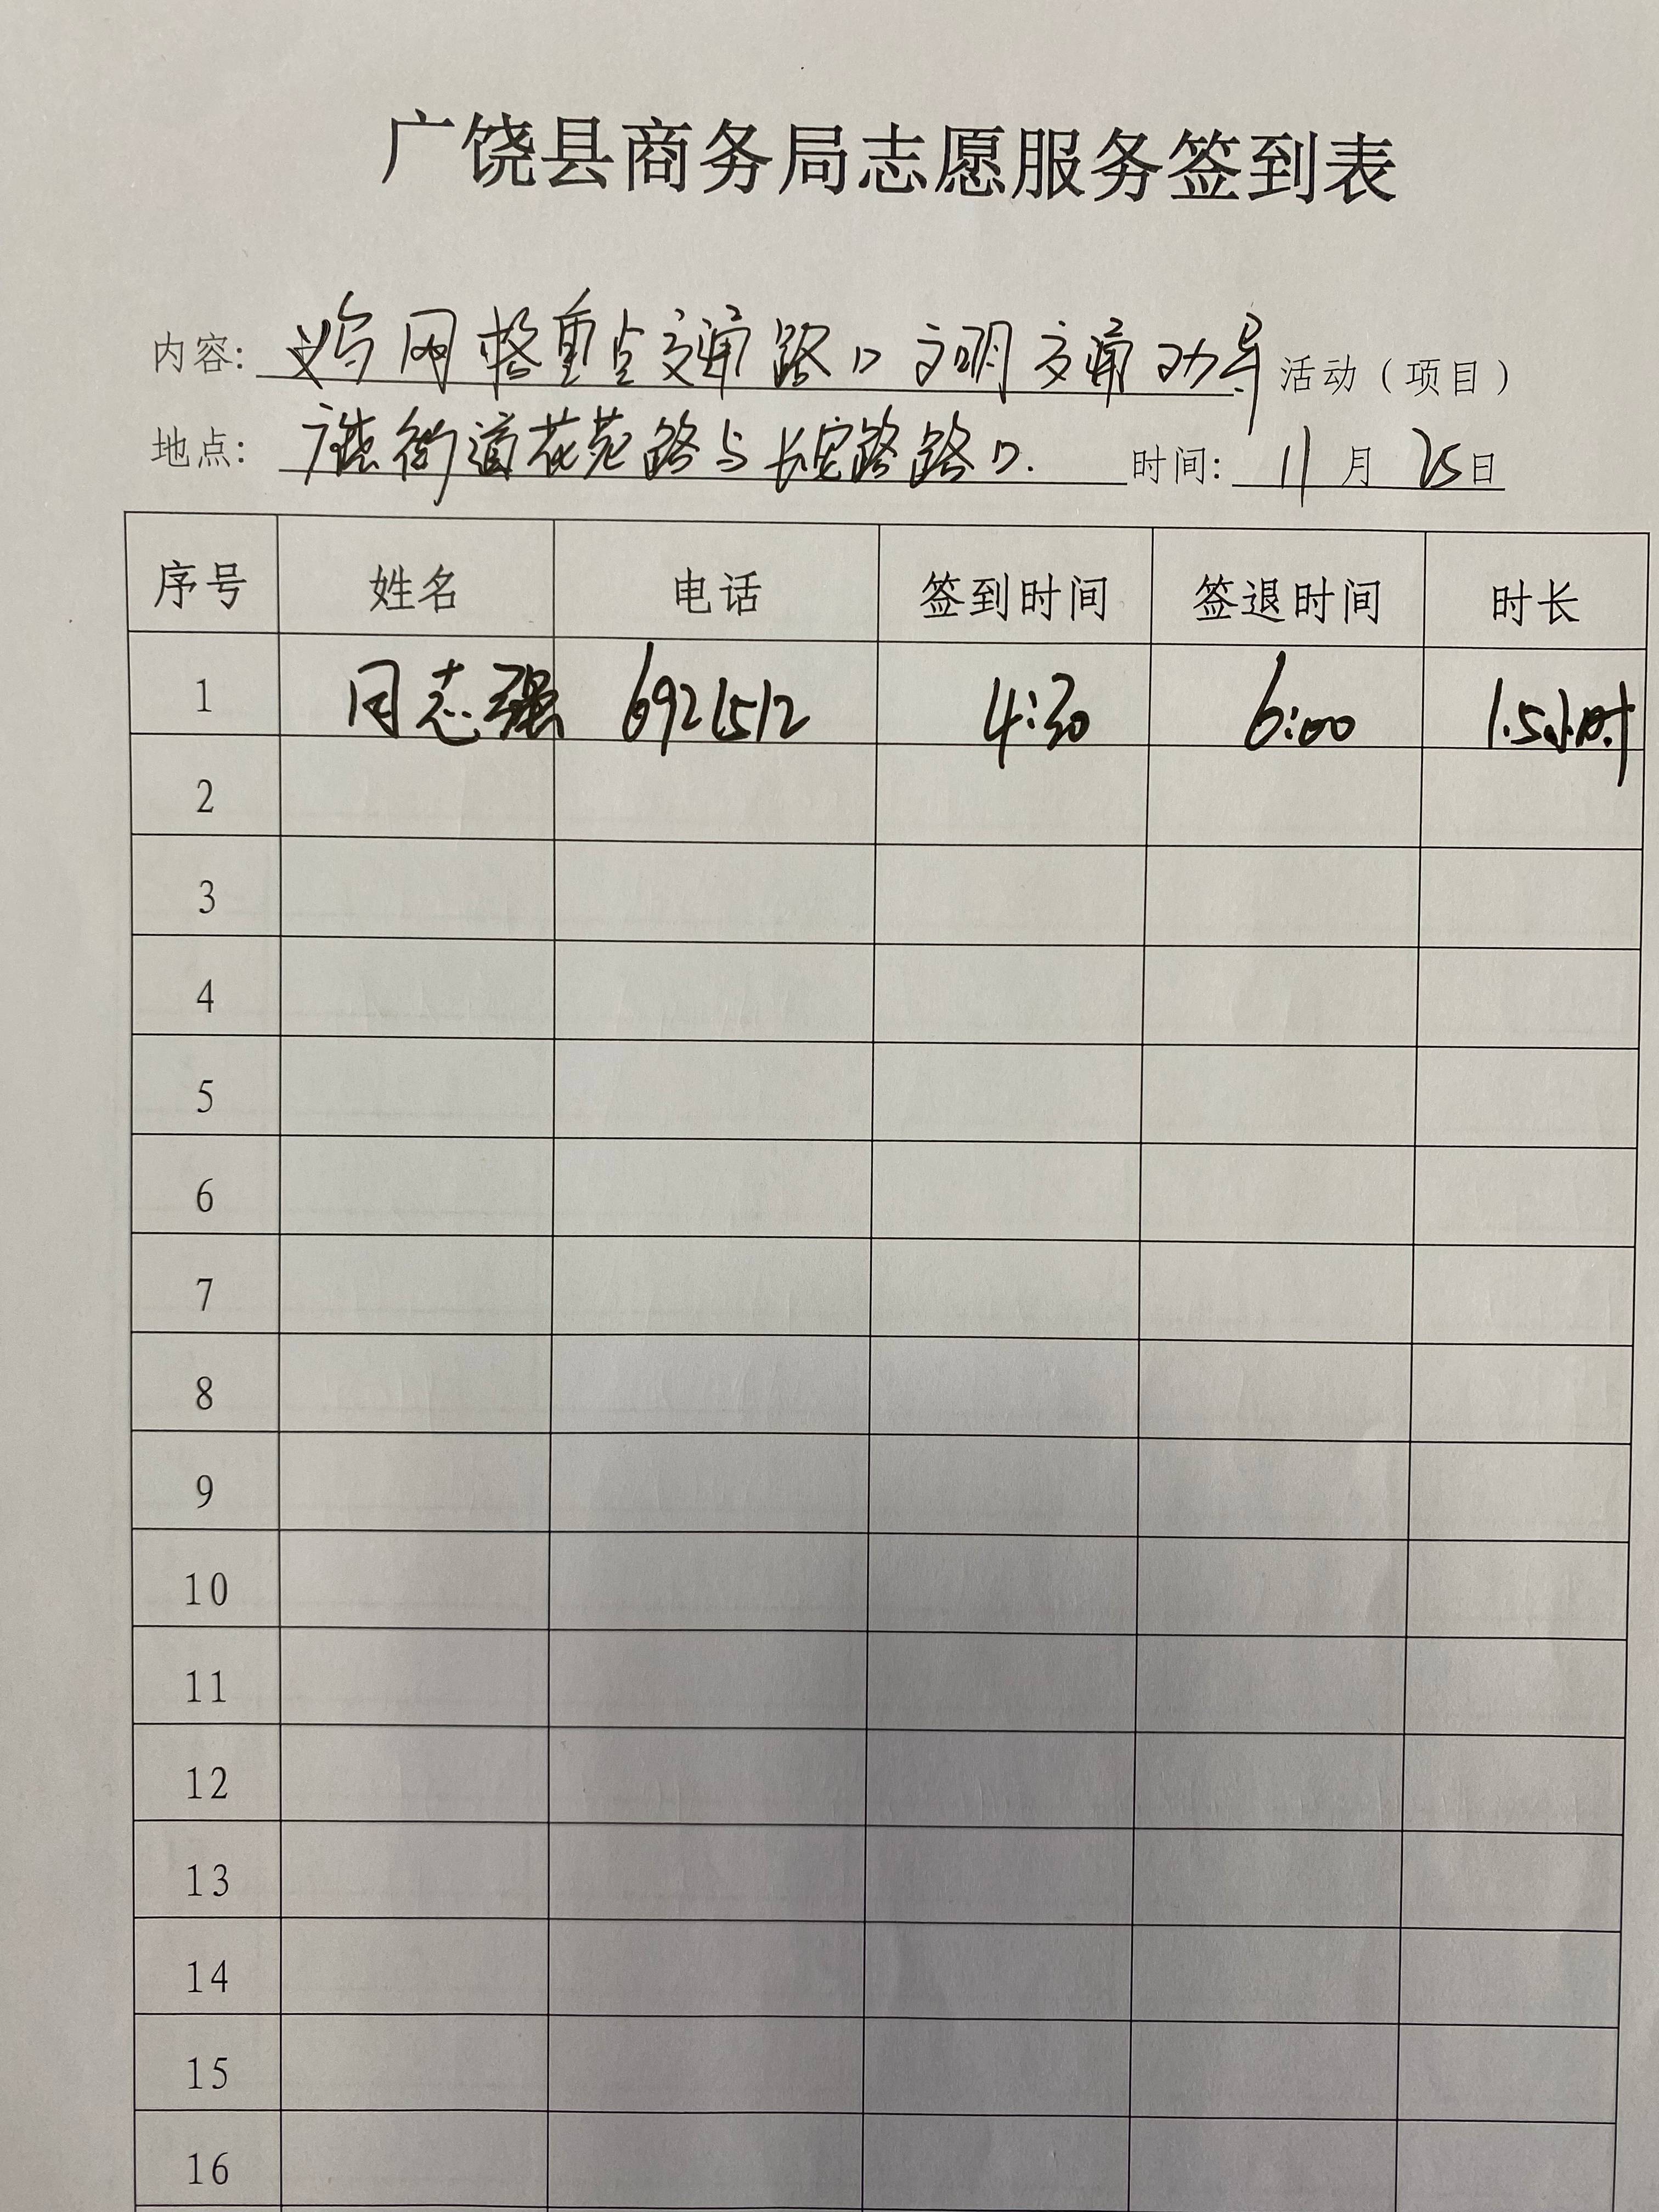 广饶县商务局志愿服务签到表
内容: 网格重点交通路口文明交通劝导 活动（项目）
地点: 街道花苑路与长安路路口. 时间: 11月25日
序号 姓名 电话 签到时间 签退时间 时长
1 志强 6921512 4:30 6:00 1.5小时
2
3
4
5
6
7
8
9
10
11
12
13
14
15
16